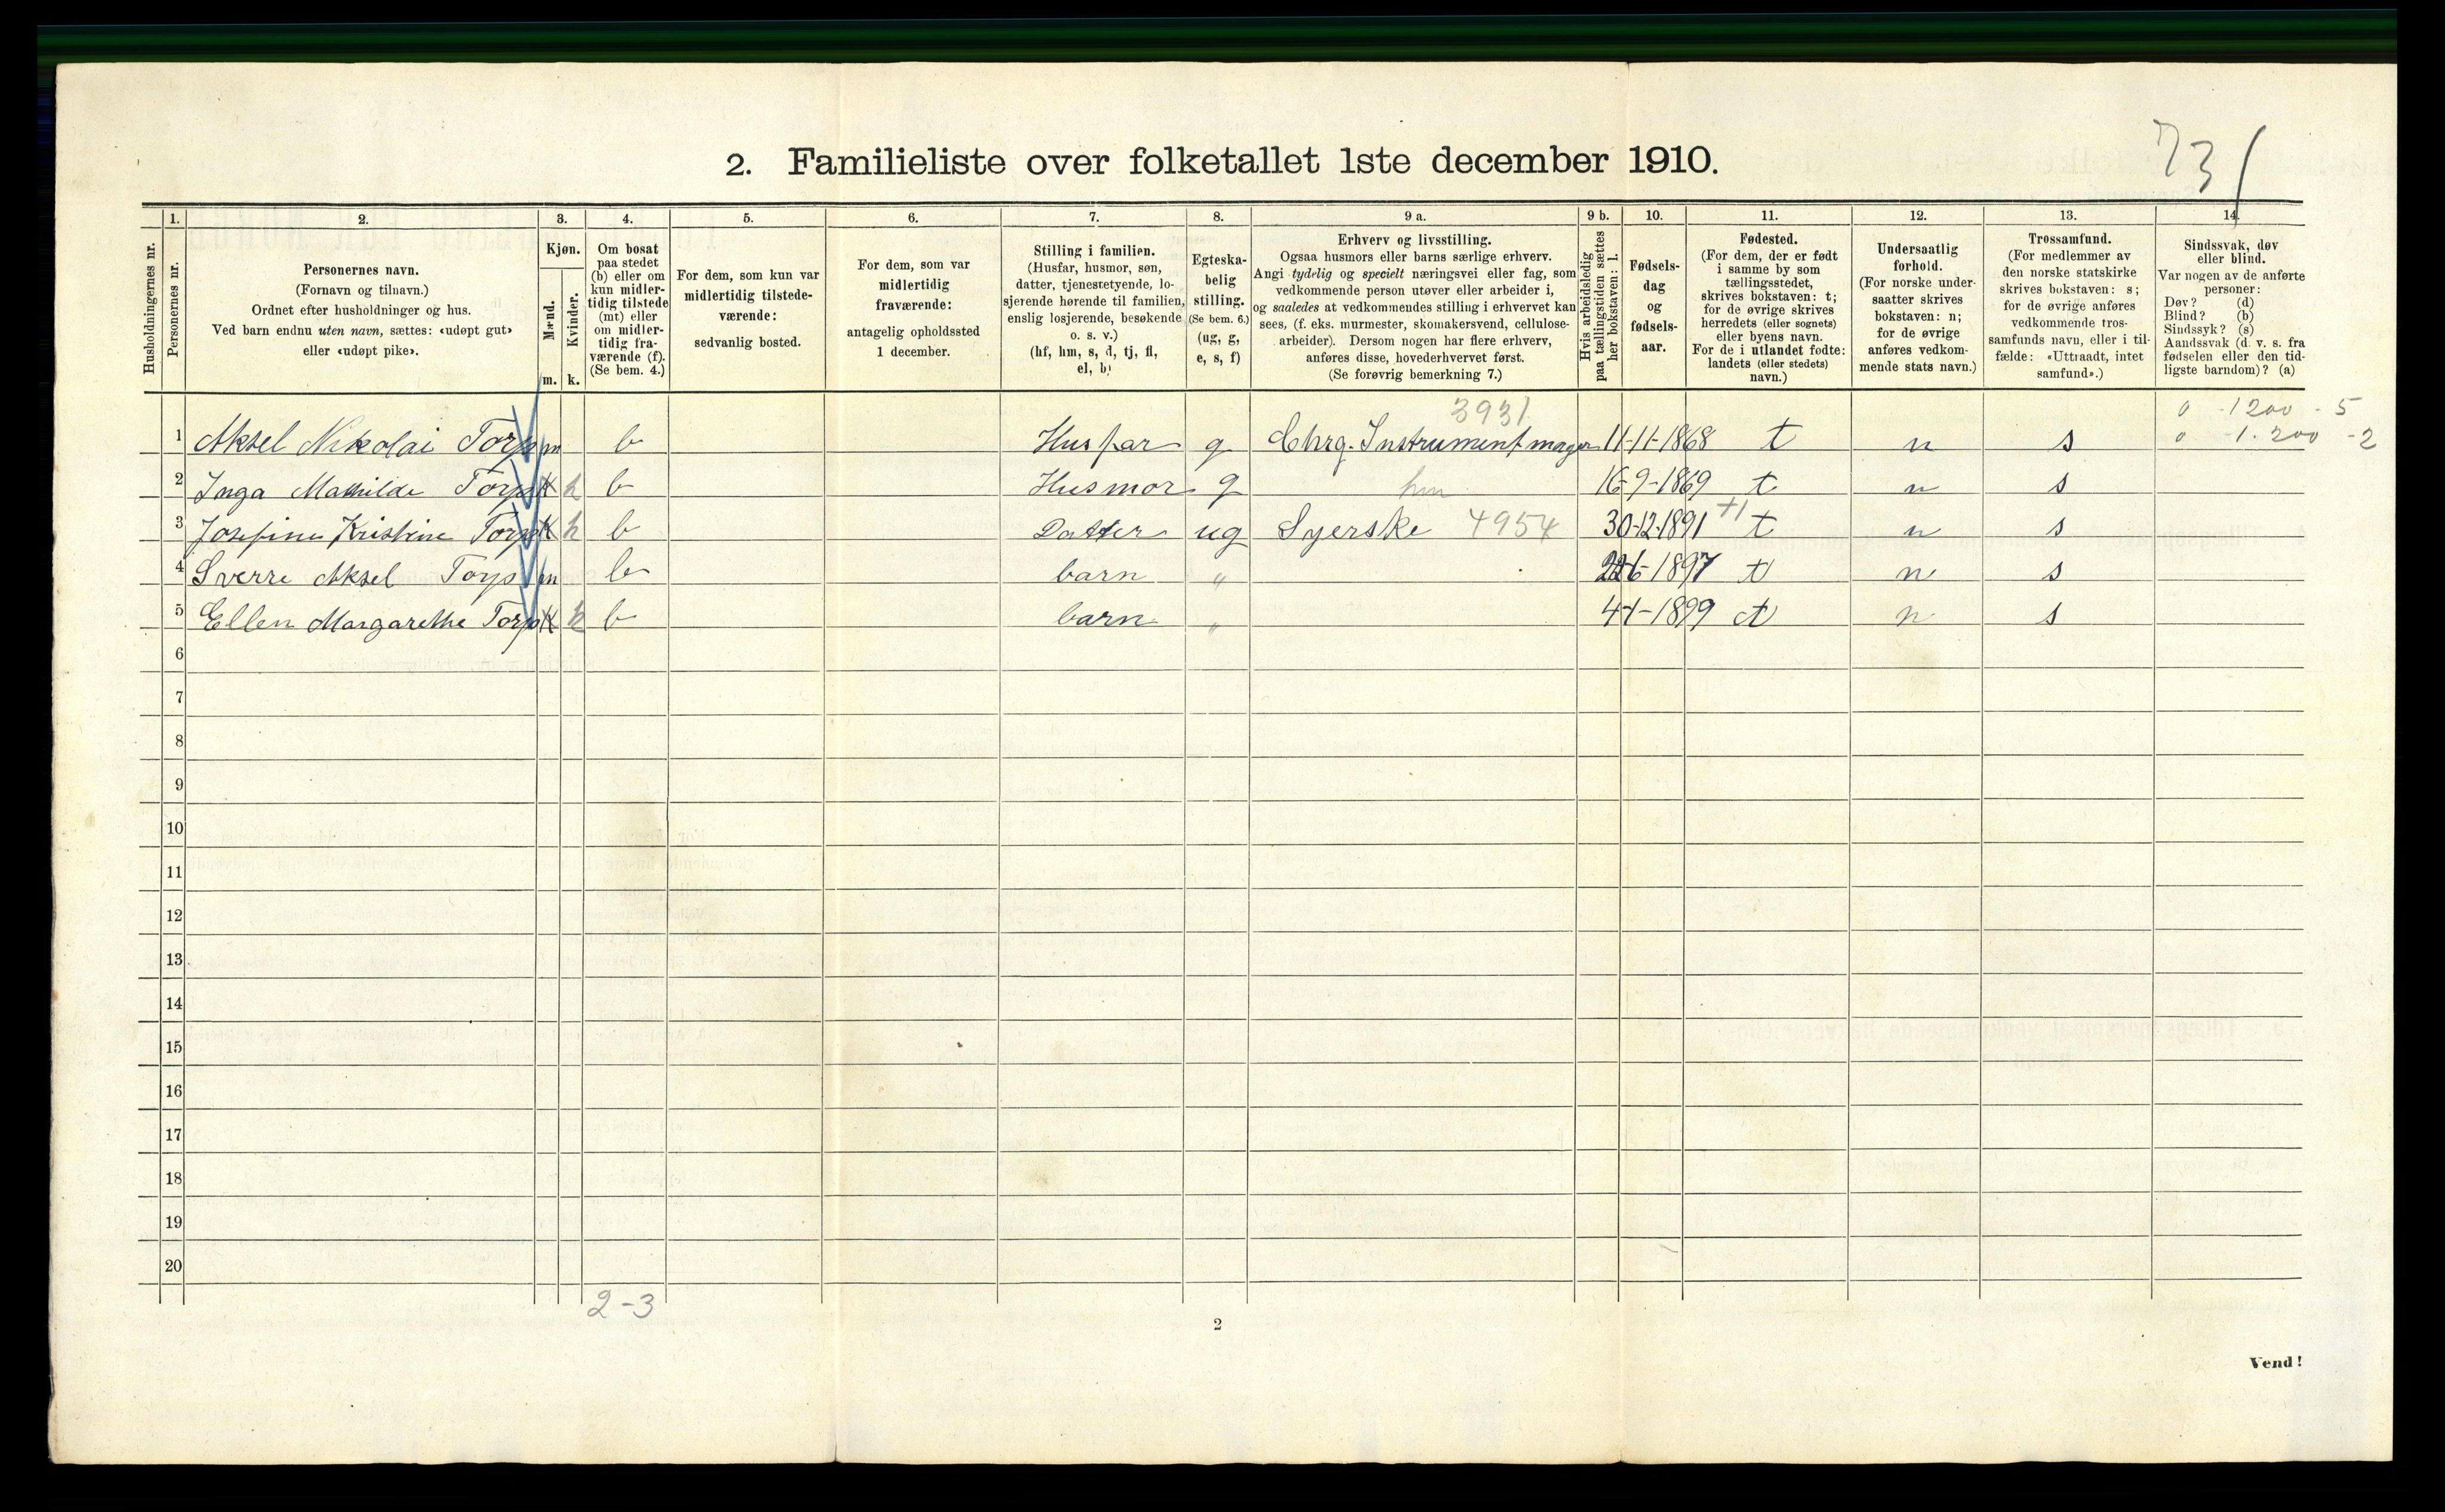 731
2. Familieliste over folketallet 1ste december 1910.
Husholdningernes nr.
1. Personernes nr.
2. Personernes navn.
(Fornavn og tilnavn.)
Ordnet efter husholdninger og hus.
Ved barn endnu uten navn, sættes: «udøpt gut»
eller «udøpt pike».
3. Kjøn.
Mænd. m.
Kvinder. k.
4. Om bosat
paa stedet
(b) eller om
kun midler-
tidig tilstede
(mt) eller
om midler-
tidig fra-
værende (f).
(Se bem. 4.)
5. For dem, som kun var
midlertidig tilstede-
værende:
sedvanlig bosted.
6. For dem, som var
midlertidig
fraværende:
antagelig opholdssted
1 december.
7. Stilling i familien.
(Husfar, husmor, søn,
datter, tjenestetyende, lo-
sjerende hørende til familien,
enslig losjerende, besøkende
o. s. v.)
(hf, hm, s, d, tj, fl,
el, b)
8. Egteska-
belig
stilling.
(Se bem. 6.)
(ug, g,
e, s, f)
9 a. Erhverv og livsstilling.
Ogsaa husmors eller barns særlige erhverv.
Angi tydelig og specielt næringsvei eller fag, som
vedkommende person utøver eller arbeider i,
og saaledes at vedkommendes stilling i erhvervet kan
sees, (f. eks. murmester, skomakersvend, cellulose-
arbeider). Dersom nogen har flere erhverv,
anføres disse, hovederhvervet først.
(Se forøvrig bemerkning 7.)
9 b. Hvis arbeidsledig
paa tællingstiden sættes
her bokstaven: l.
10. Fødsels-
dag
og
fødsels-
aar.
11. Fødested.
(For dem, der er født
i samme by som
tællingsstedet,
skrives bokstaven: t;
for de øvrige skrives
herredets (eller sognets)
eller byens navn.
For de i utlandet fødte:
landets (eller stedets)
navn.)
12. Undersaatlig
forhold.
(For norske under-
saatter skrives
bokstaven: n;
for de øvrige
anføres vedkom-
mende stats navn.)
13. Trossamfund.
(For medlemmer av
den norske statskirke
skrives bokstaven: s;
for de øvrige anføres
vedkommende tros-
samfunds navn, eller i til-
fælde: «Uttraadt, intet
samfund».)
14. Sindssvak, døv
eller blind.
Var nogen av de anførte
personer:
Døv? (d)
Blind? (b)
Sindssyk? (s)
Aandssvak (d. v. s. fra
fødselen eller den tid-
ligste barndom)? (a)
3931 0 - 1200 - 5
1 Aksel Nikolai Torp m b Husfar g Chrg. Instrumentmager 11-11-1868 t n s 0 - 1.200 - 2
2 Inga Mathilde Torp k b Husmor g hm 16-9-1869 t n s
3 Josefine Kristine Torp k b Datter ug Syerske 4954 30-12-1891 +1 t n s
4 Sverre Aksel Torp m b barn " 22-6-1897 t n s
5 Ellen Margarethe Torp k b barn " 4-1-1899 t n s
6
7
8
9
10
11
12
13
14
15
16
17
18
19
20
2-3
2
Vend!